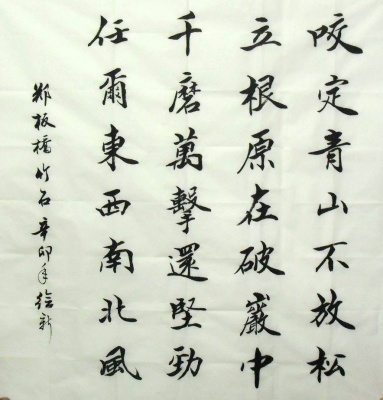 咬定青山不放松
立根原在破巖中
千磨萬擊還堅勁
任爾東西南北風
郑板橋竹石辛卯年繪新